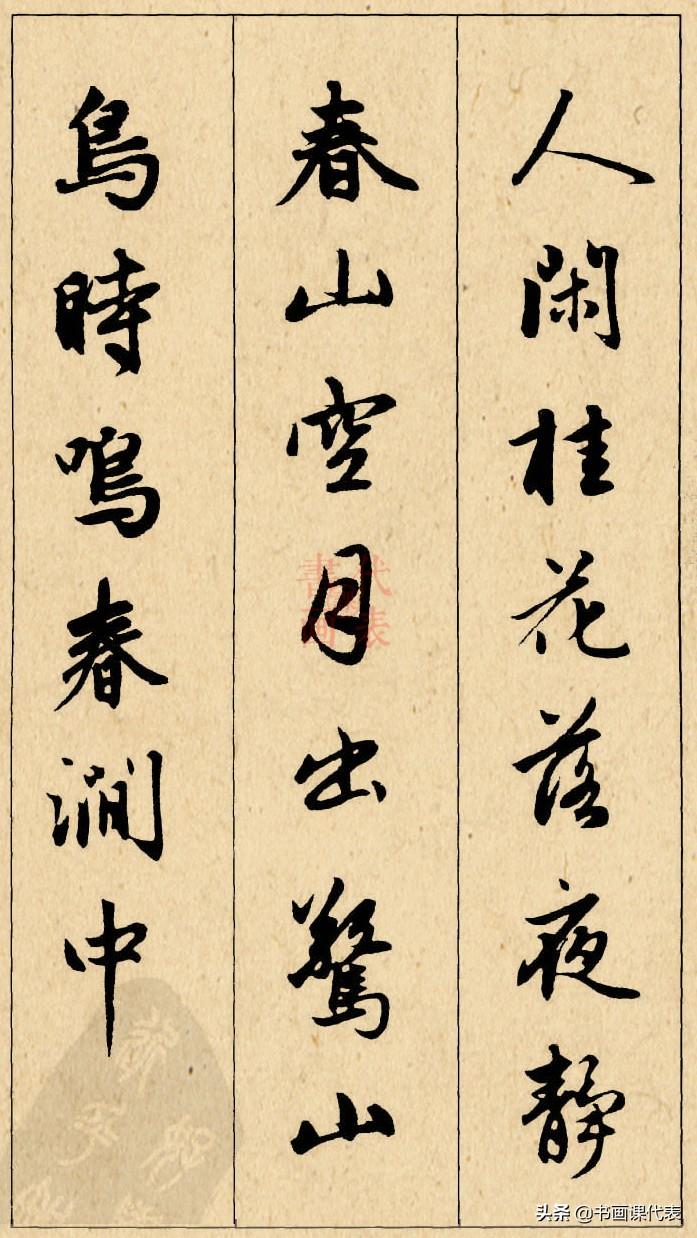 人閑桂花落夜静
春山空月出驚山
鳥時鳴春澗中
头条 @书画课代表